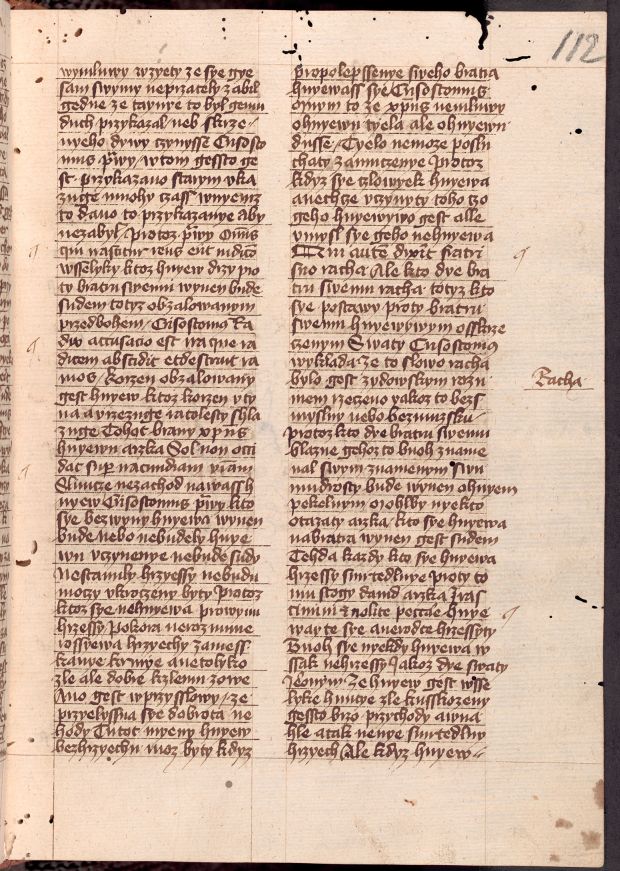 112
wymluwy wzyety ze sye gye
sam swymy neprzately zabil
gedne ze taynye to byl gemu
duch przykazal neb skrze
nyeho dywy czynysse Crisosto
mus prwy w tom gessto ge
st przykazano starym vka
zuge mnohy czass w nyemz
to dano to przykazanye aby
nezabyl Protoz prwy Omnis
qui nascitur reus erit iudicio
wsselyky ktoz hnyew drzy pro
ty bratru swemu wynen bude
sudem totyz obzalowanym
przed bohem Crisostomus
accusacio est ira que ra
dicem abscidit et destruit ra
mos Korzen obzalowany
gest hnyew kitoz korzen vty
na a wrzezuge ratolesty shla
zuge Tohot brany xpus
hnyewu arzka Sol non occi
dat super iracundiam vestram
Slunce nezachod na wass h
nyew Crisostomus prwy kto
sye bez wyny hnyewa wynen
bude nebo nebudely hnye
wu vczynenye nebude sudy
Nestanuly hrzyessy nebudu
moczy vkroczeny byty Protoz
ktoz sye nehnyewa prowynu
hrzessy Pokora nerozumne
rossyewa hrzyechy zamess
kanye krmye a netolyko
zle ale dobre k zlemu zowe
Ano gest w przysslowy ze
przyelyssna sye dobrota ne
hody Tutot nyeny hnyew
bez hrzyechu moz byty kdyz
pro polepssenye sweho bratra
hnyewass sye Crisostomus
Onym to ze xpus nemluwy
o hnyewu tyela ale o hnyewu
dusse Tyelo nemoze poslu
chaty zamuczenye Protoz
kdyz sye czlowyek hnyewa
a nechcze vczynyty toho czo
geho hnyewywo gest alle
vmysl sye geho nehnyewa
Qui autem dixerit fratri
suo racha Ale kto dye bra
tru swemu racha totyz kto
sye postawy proty bratru
swemu hnyewywym osskrze
czenym Swaty Crisostomus
wyklada ze to slowo racha
bylo gest zydowskym rozu
mem rzeczeno yakoz to bezs
myslny nebo bezmozsku
Protoz kto dye bratru swemu
blazne gehoz to buoh zname
nal swym znamenym swu
mudrosty bude wynen ohnyem
pekelnym O ohlby nyekto
otazaty arzka kto sye hnyewa
na bratra wynen gest sudem
Tehda kazdy kto sye hnyewa
hrzessy smrtedlnye Proty to
mu stogy dauid arzka Iras
cimini et nolite peccare hnye
wayte sye a nerodte hrzessyty
Buoh sye nyekdy hnyewa w
ssak nehrzessy Jakoz dye swaty
Jeronym Ze hnyew gest wsse
lyke hnutye zle k vsskozeny
gessto brzo przychody a w na
hle a tak nenye smrtedlny
hrzyech Ale kdyz hnyew
Racha